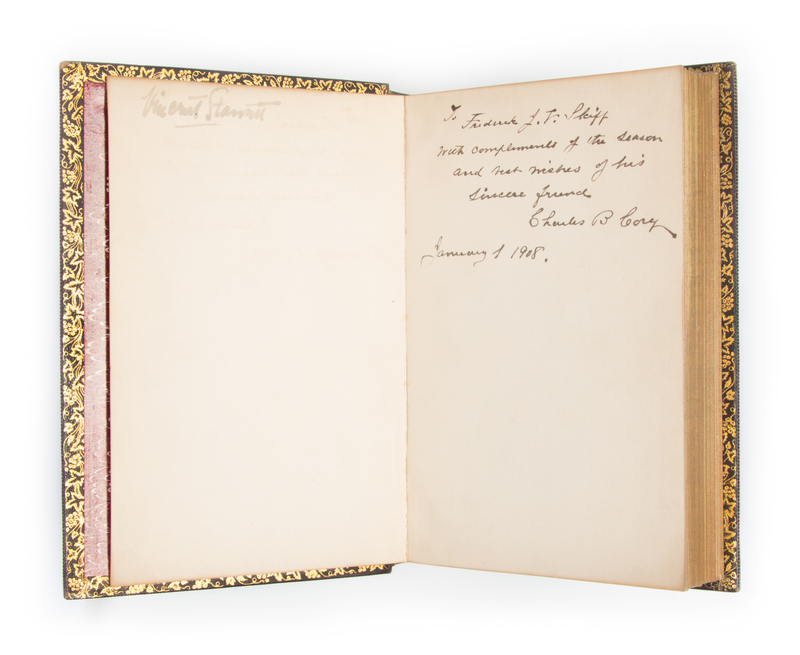 Vincent Starrett
To Frederick J. V. Skiff
with compliments of the season
and best wishes of his
sincere friend
Charles B Cory
January 1 1908.